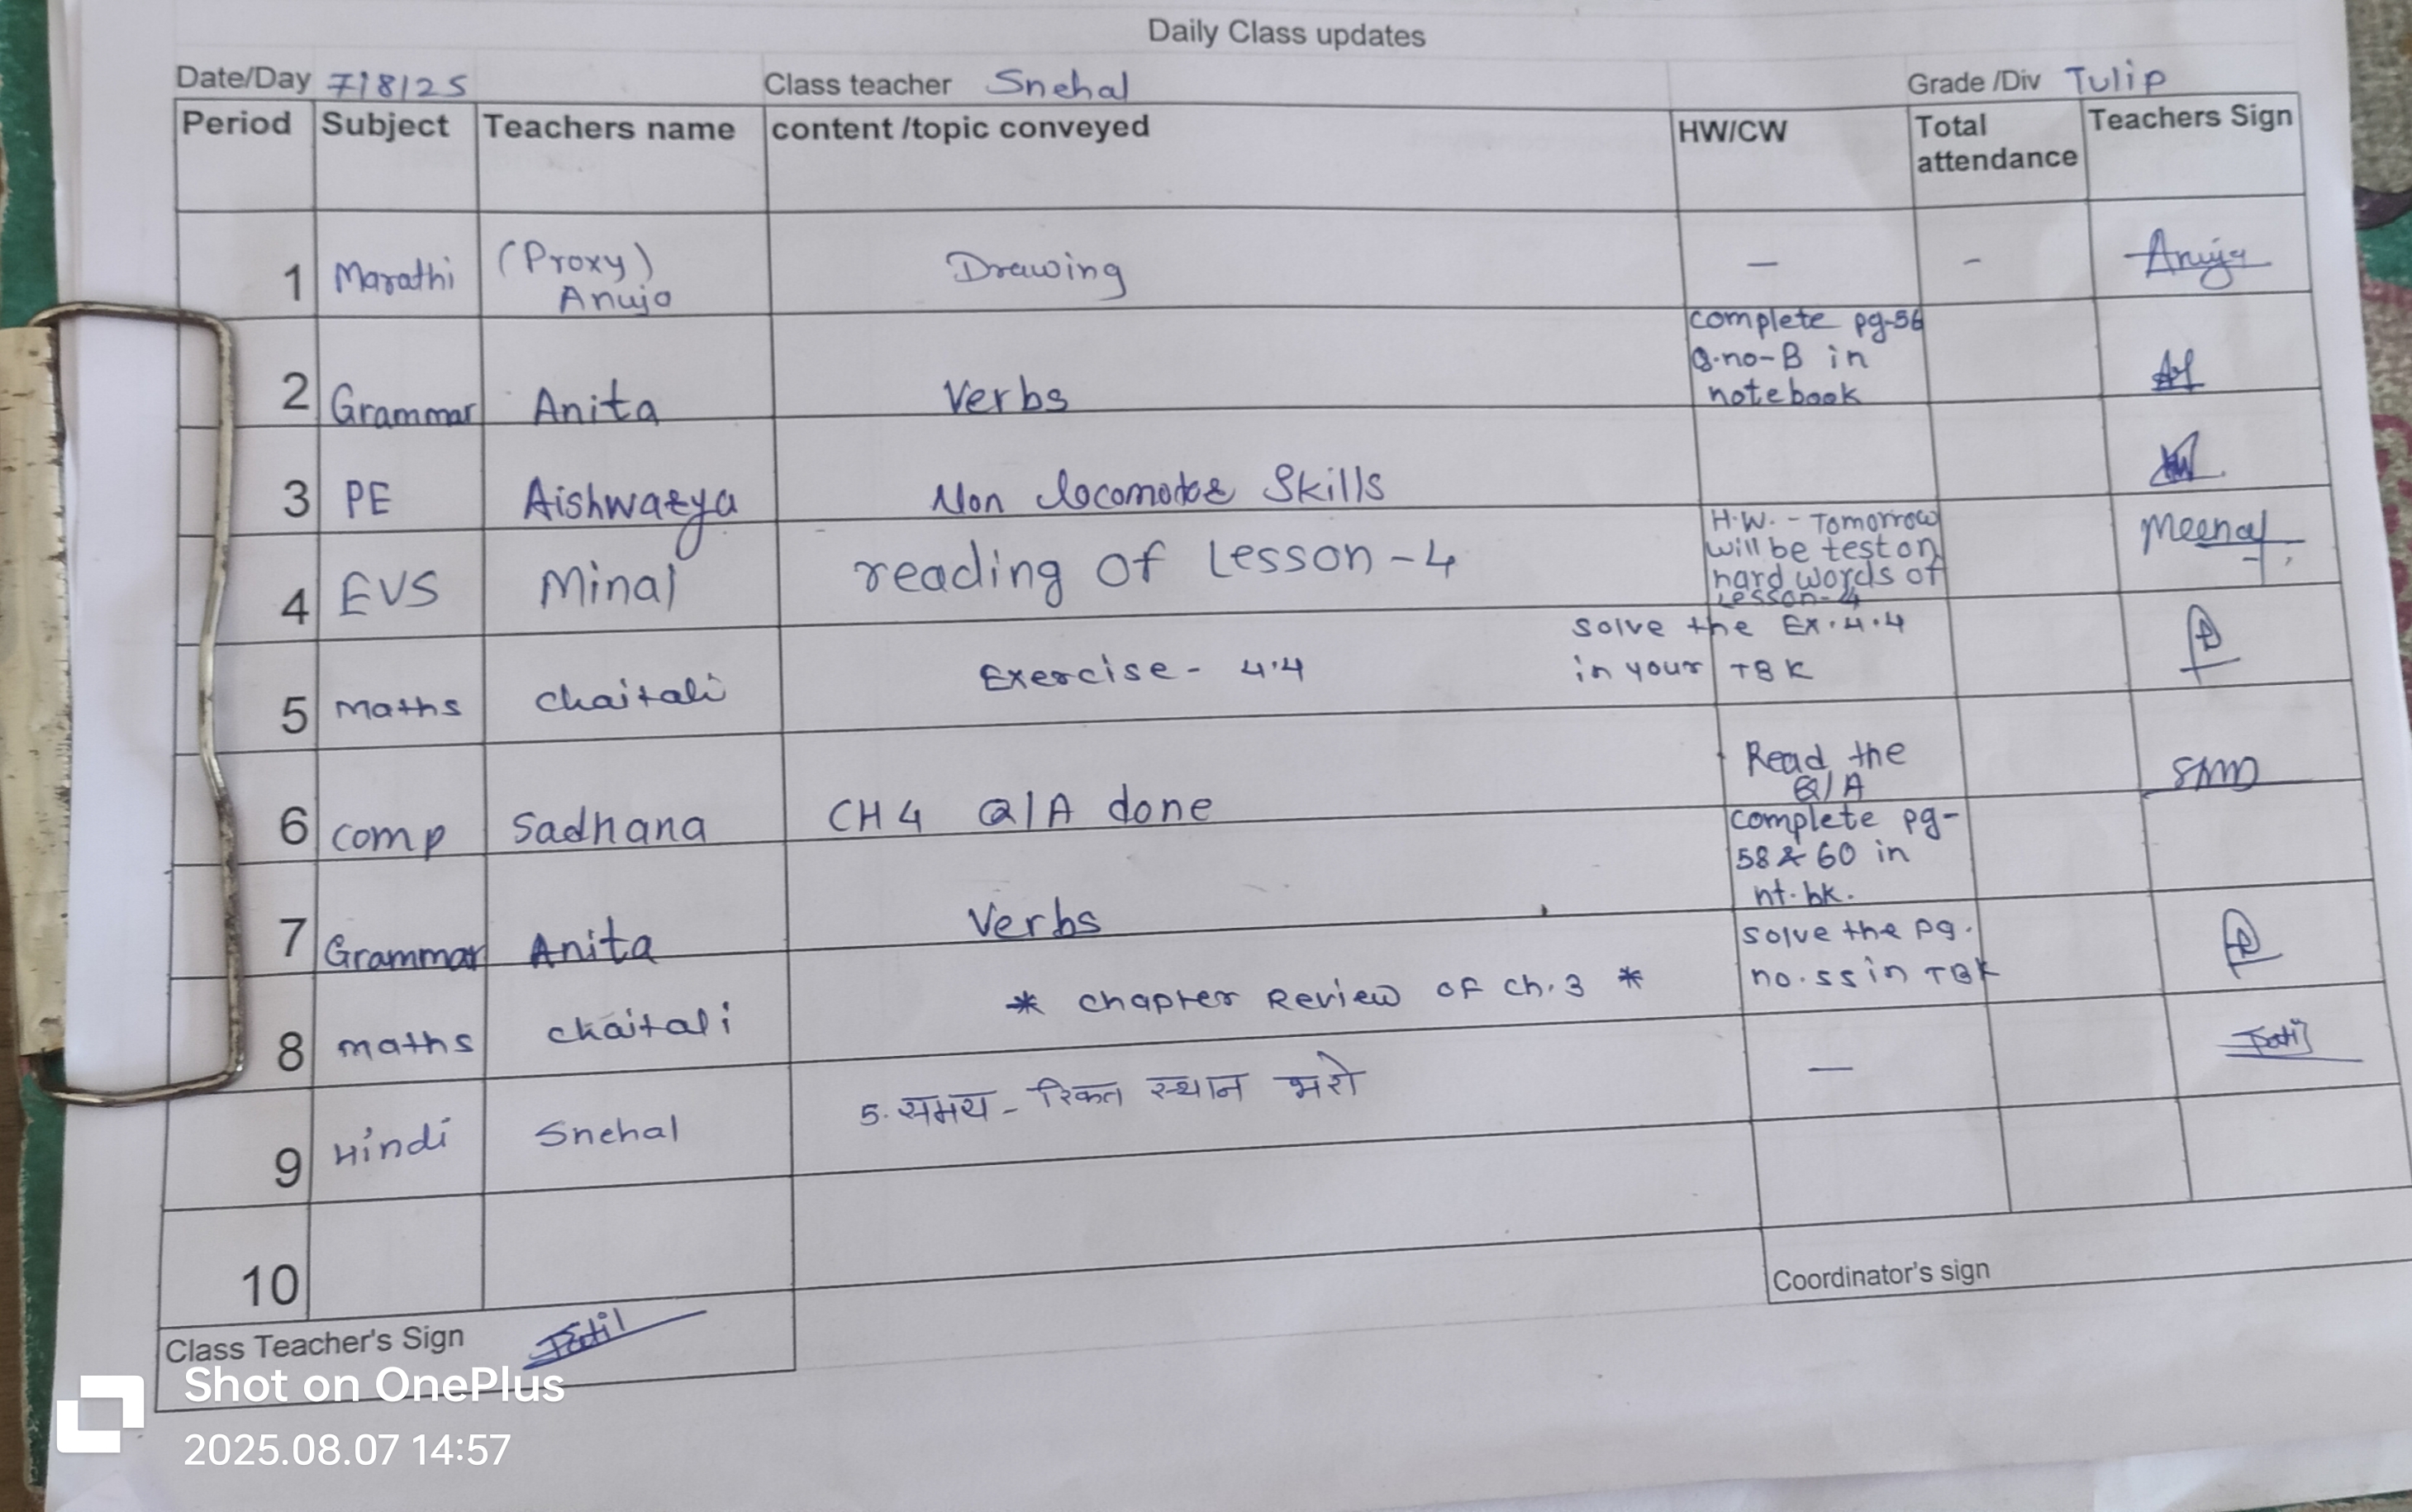 Daily Class updates
Date/Day 7/8/25 Class teacher Snehal Grade /Div Tulip
Period Subject Teachers name content /topic conveyed HW/CW Total attendance Teachers Sign
1 Marathi (Proxy) Anuja Drawing — - Anuja
2 Grammar Anita Verbs complete pg-56 Q.no-B in notebook
3 PE Aishwarya Non locomotor Skills
4 EVS Minal reading of Lesson-4 H.W. - Tomorrow will be test on hard words of Lesson-4 Meenal
5 Maths Chaitali Exercise - 4.4 solve the Ex.4.4 in your TBK
6 comp Sadhana CH 4 Q/A done Read the Q/A
7 Grammar Anita Verbs complete pg-58 & 60 in nt.bk.
8 maths chaitali * chapter Review of ch.3 * solve the pg. no.55 in TBK
9 Hindi Snehal 5. समय - रिक्त स्थान भरो — Patil
10
Coordinator's sign
Class Teacher's Sign Patil
Shot on OnePlus
2025.08.07 14:57